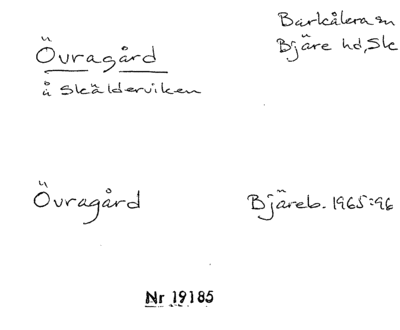 Övragård
å Skälderviken
Barkåkra sn
Bjäre hd, Sk
Övragård
Bjäreb. 1965:96
Nr 19185